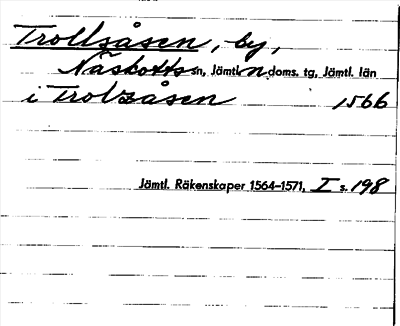 Trollsåsen, by,
Näskotts sn, Jämtl. n. doms. tg, Jämtl. län
i Trolzåsen 1566
Jämtl. Räkenskaper 1564–1571, I s. 198